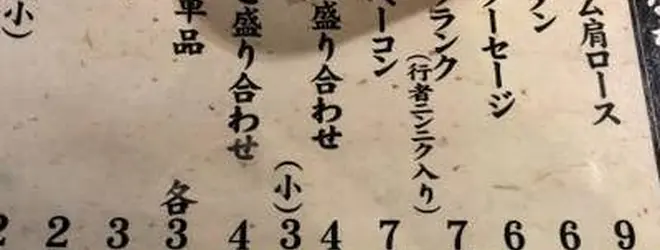 ム肩ロース 9
6
ソーセージ 6
フランク(行者ニンニク入り) 7
ベーコン 7
盛り合わせ 4
(小) 3
盛り合わせ 4
単品 各 3
3
2
小) 2